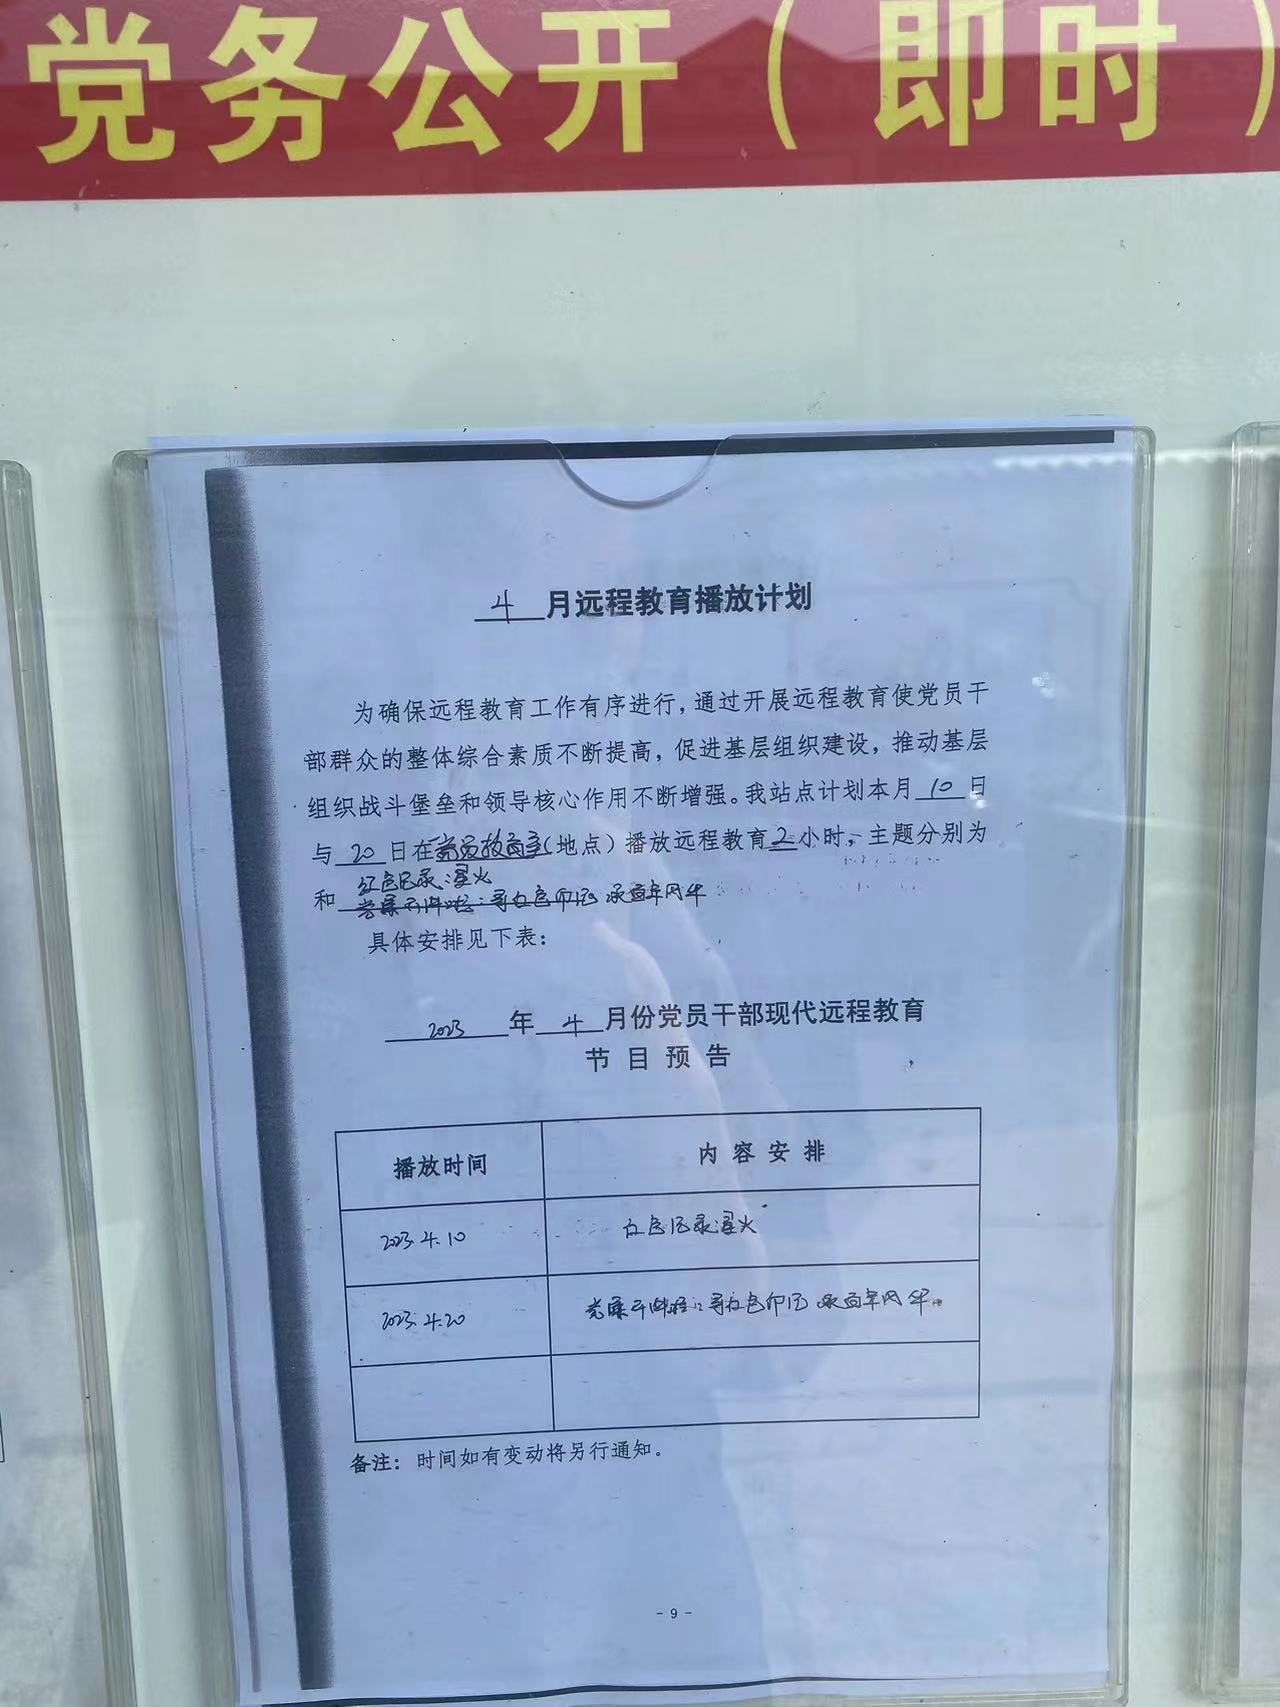 党务公开（即时）
4月远程教育播放计划
为确保远程教育工作有序进行，通过开展远程教育使党员干
部群众的整体综合素质不断提高，促进基层组织建设，推动基层
组织战斗堡垒和领导核心作用不断增强。我站点计划本月10日
与20日在党员教育室（地点）播放远程教育2小时，主题分别为
红色记录：星火
和 寻红色印记 承百年风华
具体安排见下表：
2023年4月份党员干部现代远程教育
节目预告
播放时间 内容安排
2023.4.10 红色记录：星火
2023.4.20 寻红色印记 承百年风华。
备注：时间如有变动将另行通知。
- 9 -